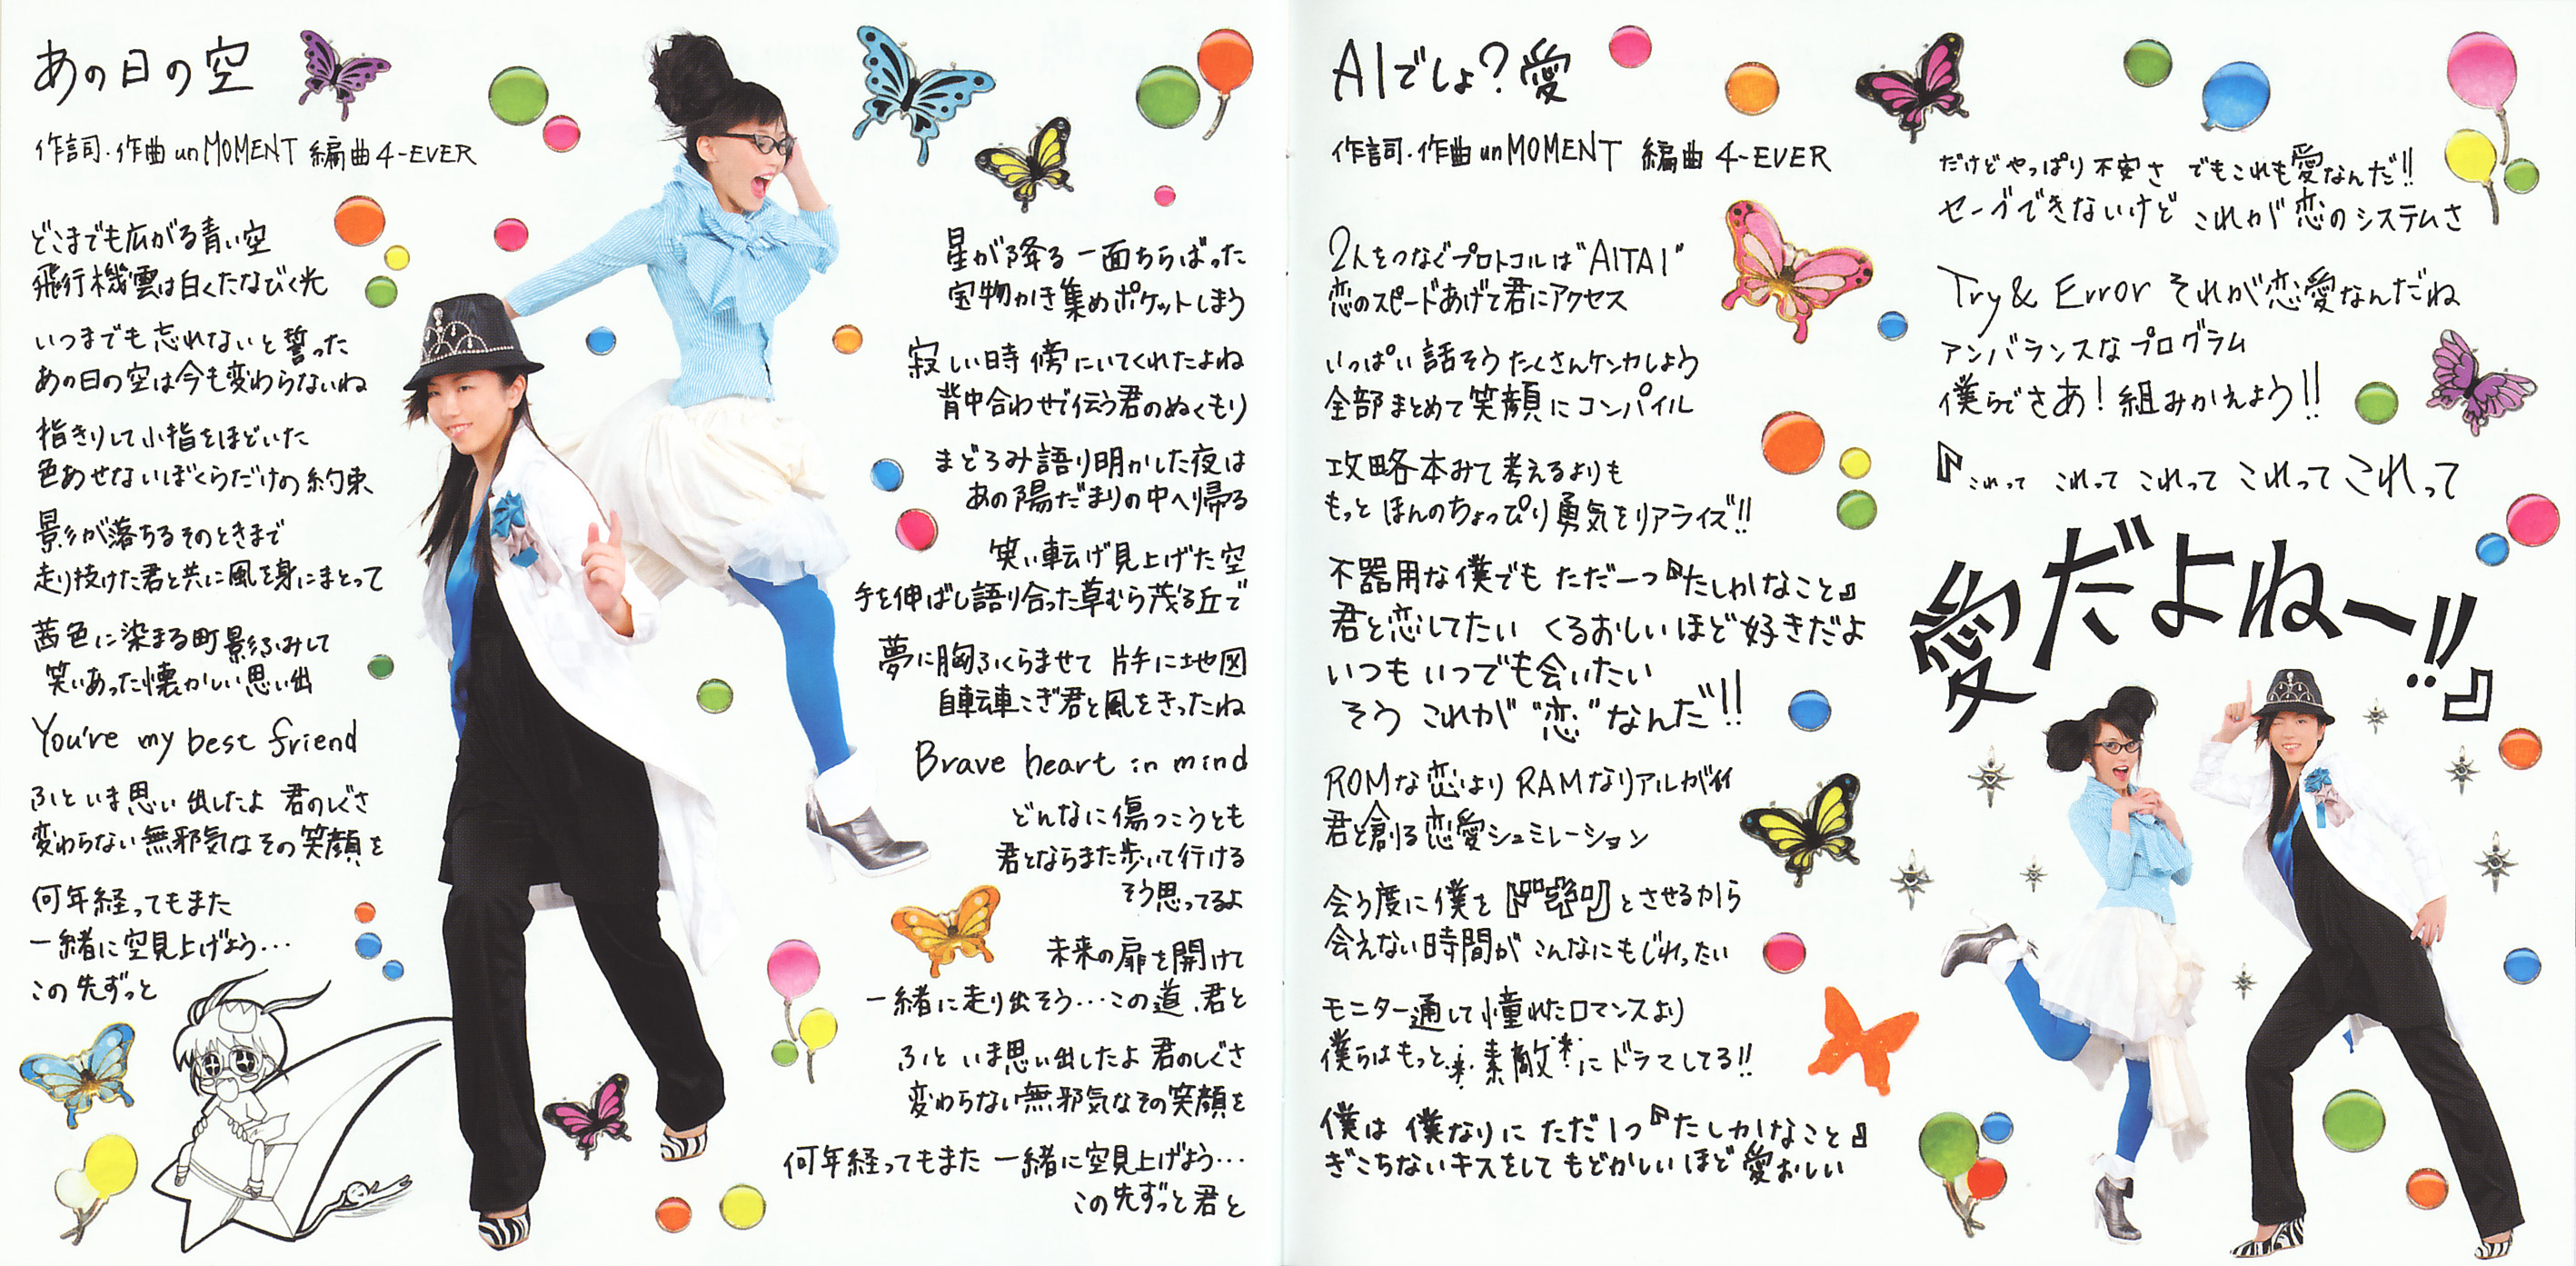 あの日の空
作詞・作曲 unMOMENT 編曲 4-EVER
どこまでも広がる青い空
飛行機雲は白くたなびく光
いつまでも忘れないと誓った
あの日の空は今も変わらないね
指きりして小指をほどいた
色あせないぼくらだけの約束
影が落ちるそのときまで
走り抜けた君と共に風を身にまとって
茜色に染まる町影ふみして
笑いあった懐かしい思い出
You're my best friend
ふと いま思い出したよ 君のしぐさ
変わらない無邪気なその笑顔を
何年経ってもまた
一緒に空見上げよう…
この先ずっと
星が降る 一面ちらばった
宝物かき集めポケットしまう
寂しい時 傍にいてくれたよね
背中合わせで伝う君のぬくもり
まどろみ語り明かした夜は
あの陽だまりの中へ帰る
笑い転げ見上げた空
手を伸ばし語り合った草むら茂る丘で
夢に胸ふくらませて 片手に地図
自転車こぎ君と風をきったね
Brave heart in mind
どんなに傷つこうとも
君とならまた歩いて行ける
そう思ってるよ
未来の扉を開けて
一緒に走り出そう…この道、君と
ふと いま思い出したよ 君のしぐさ
変わらない無邪気なその笑顔を
何年経ってもまた 一緒に空見上げよう…
この先ずっと君と
AIでしょ?愛
作詞・作曲 unMOMENT 編曲 4-EVER
2人をつなぐプロトコルは"AITAI"
恋のスピードあげて君にアクセス
いっぱい話そう たくさんケンカしよう
全部まとめて笑顔にコンパイル
攻略本みて考えるよりも
もっと ほんのちょっぴり勇気をリアライズ!!
不器用な僕でも ただ一つ『たしかなこと』
君と恋してたい くるおしいほど好きだよ
いつも いつでも会いたい
そう これが"恋"なんだ!!
ROMな恋より RAMなリアルがイイ
君と創る恋愛シュミレーション
会う度に僕をドキリとさせるから
会えない時間が こんなにもじれったい
モニター通して憧れたロマンスより
僕らはもっと素敵にドラマしてる!!
僕は 僕なりに ただ1つ『たしかなこと』
ぎこちないキスをして もどかしいほど愛おしい
だけどやっぱり不安さ でもこれも愛なんだ!!
セーブできないけど これが恋のシステムさ
Try & Error それが恋愛なんだね
アンバランスなプログラム
僕らでさあ! 組みかえよう!!
『これって これって これって これって これって
愛だよねー!!』